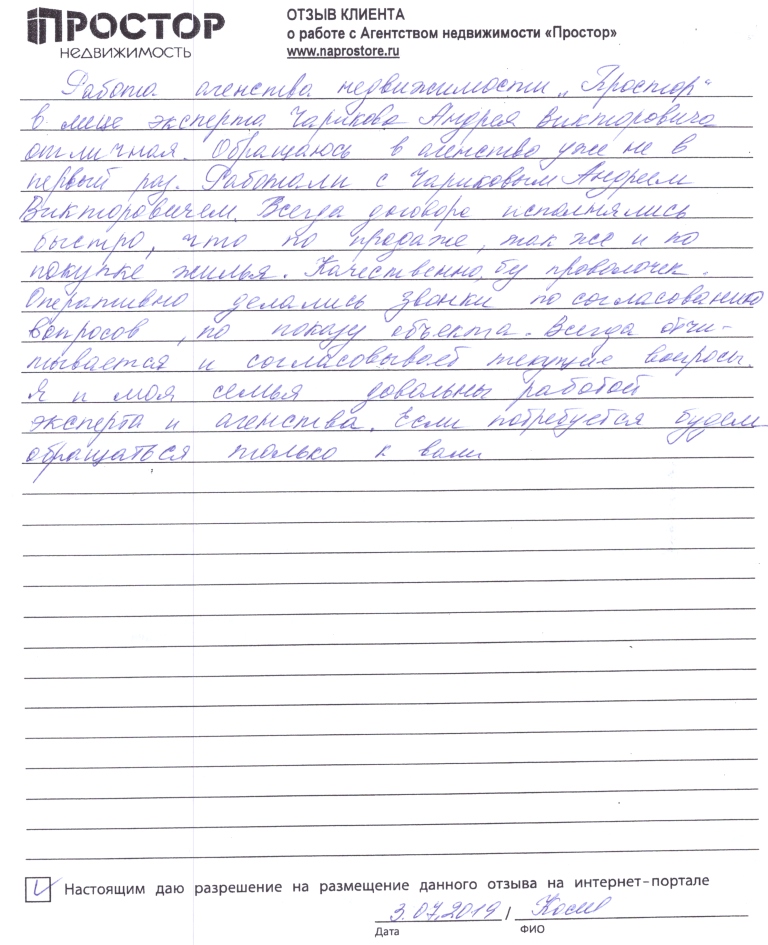 ПРОСТОР
НЕДВИЖИМОСТЬ
ОТЗЫВ КЛИЕНТА
о работе с Агентством недвижимости «Простор»
www.naprostore.ru
Работа агенства недвижимости „Простор“
в лице эксперта Чарикова Андрея Викторовича
отличная. Обращаюсь в агенство уже не в
первый раз. Работали с Чариковым Андреем
Викторовичем. Всегда договора исполнялись
быстро, что по продаже, так же и по
покупке жилья. Качественно, проволочек.
Оперативно делались звонки по согласованию
вопросов, по показу объекта. Всегда отчи-
тывается и согласовывает текущие вопросы.
Я и моя семья довальны работой
эксперта и агенства. Если потребуется будем
обращаться только к вам
Настоящим даю разрешение на размещение данного отзыва на интернет-портале
3.07.2019 /
Дата ФИО